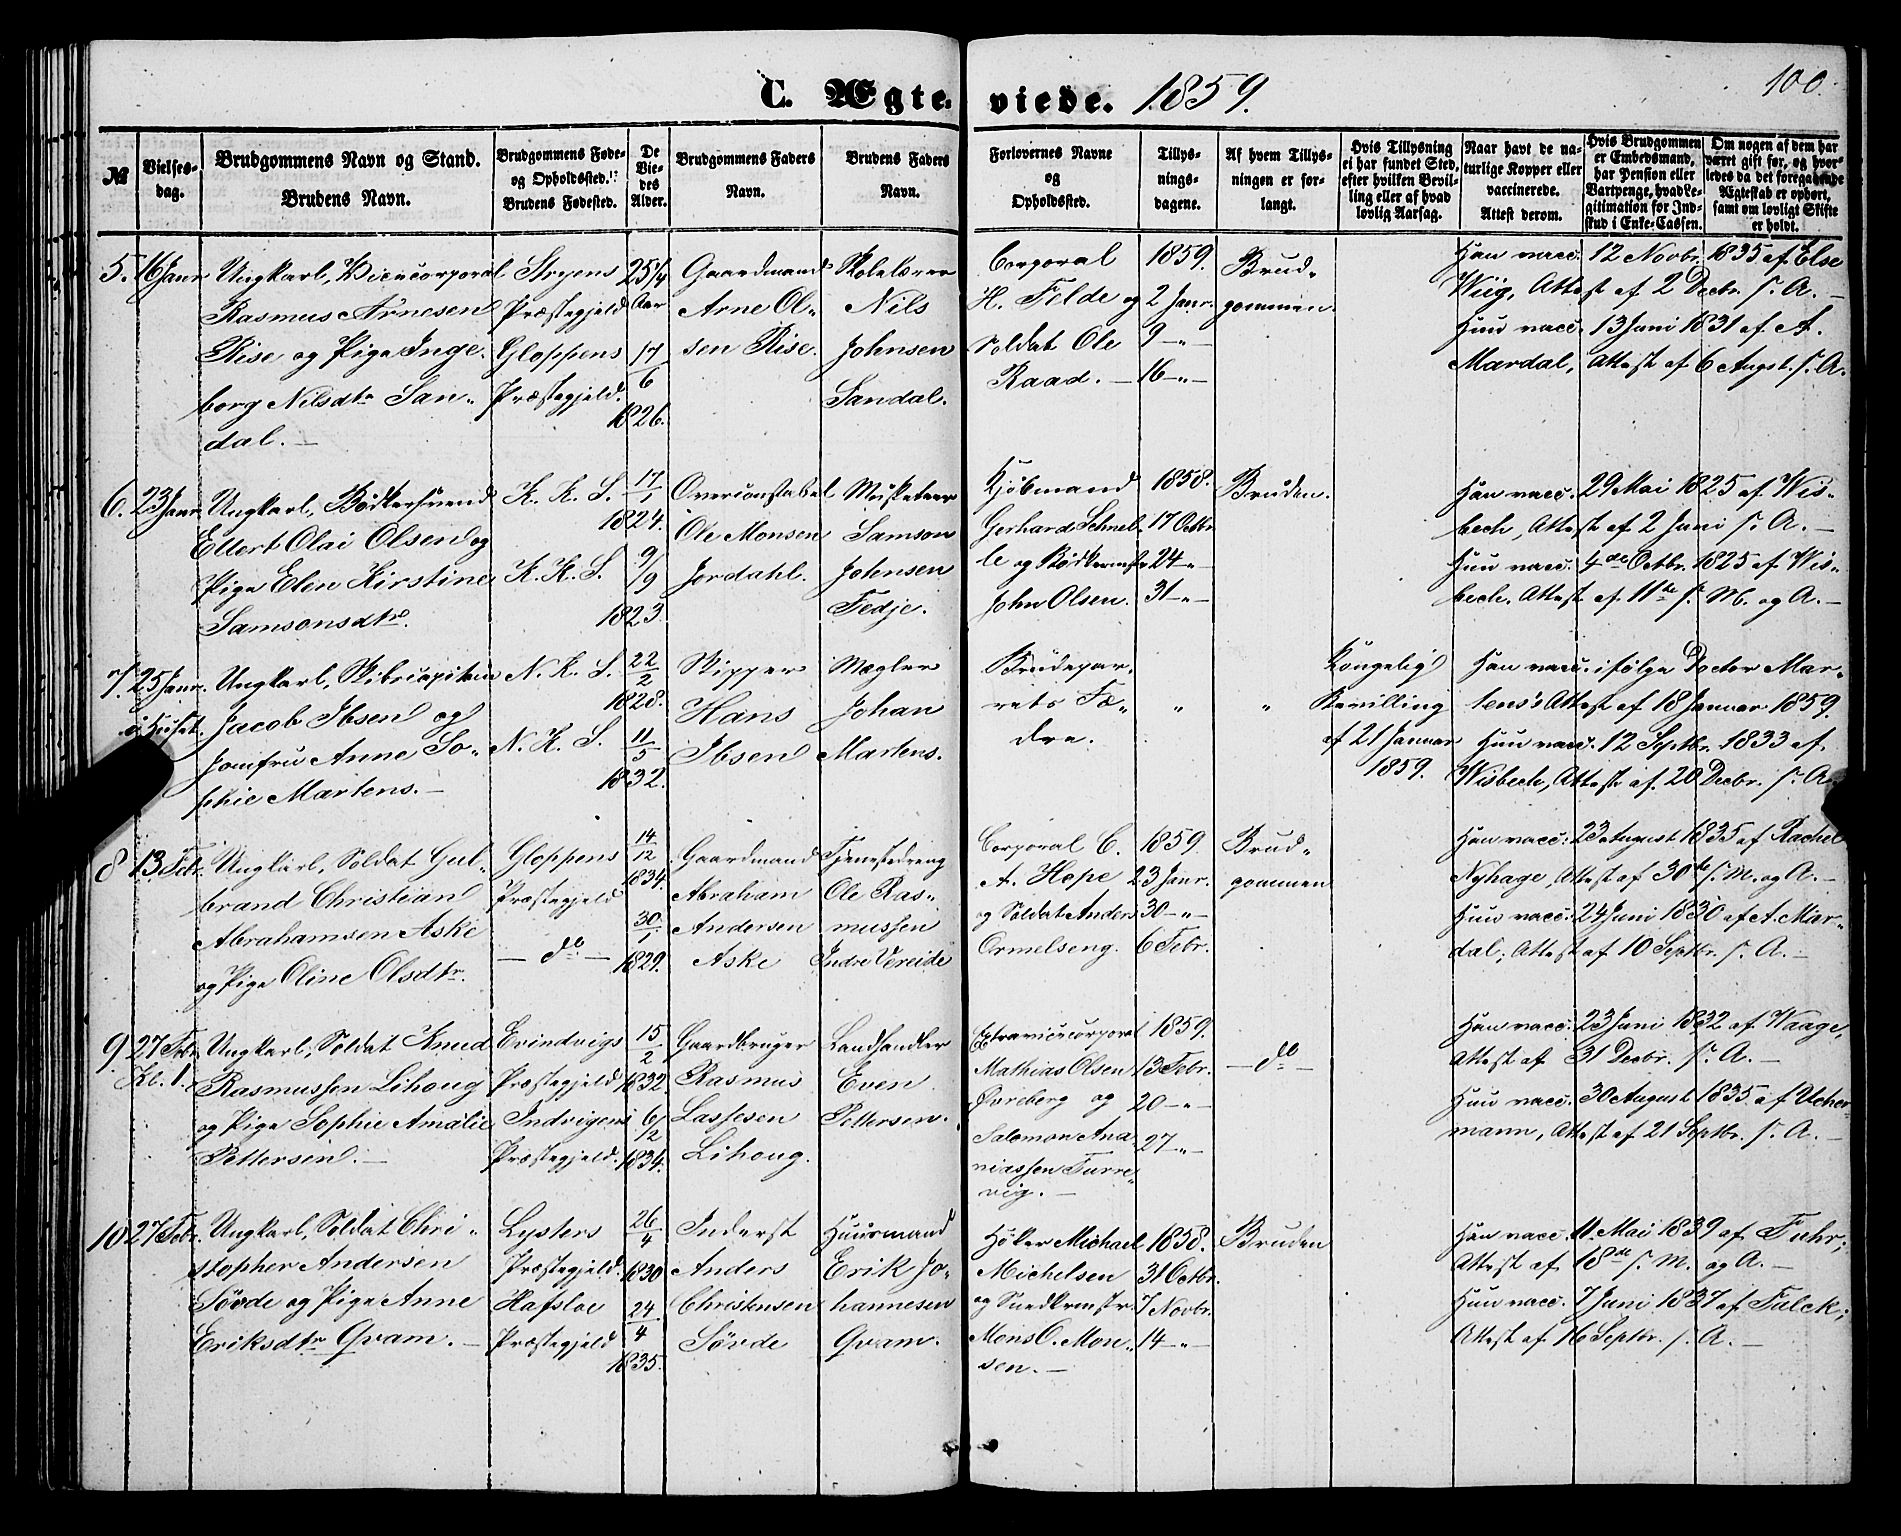 C. Ægteviede. 1859.
100.
№
Vielses-
dag.
Brudgommens Navn og Stand.
Brudens Navn.
Brudgommens Føde-
og Opholdssted.
Brudens Fødested.
De
Vie-
des
Alder.
Brudgommens Faders
Navn.
Brudens Faders
Navn.
Forlovernes Navne
og
Opholdssted.
Tillys-
nings-
dagene.
Af hvem Tillys-
ningen er for-
langt.
Hvis Tillysning
ei har fundet Sted,
efter hvilken Bevil-
ling eller af hvad
lovlig Aarsag.
Naar havt de na-
turlige Kopper eller
vaccinerede.
Attest derom.
Hvis Brudgommen
er Embedsmand,
har Pension eller
Vartpenge, hvad Le-
gitimation for Ind-
skud i Enke-Cassen.
Om nogen af dem har
været gift før, og hvor-
ledes da det foregaaende
Ægteskab er ophørt,
samt om lovligt Skifte
er holdt.
5. 16 Janr
Ungkarl, Vicecorporal
Rasmus Arnesen
Rise og Pige Inge-
borg Nilsdtr San-
dal. —
Stryens
Præstegjeld
Gloppens
Præstegjeld.
25 1/4
Aar
17
6
1826.
Gaardmand
Arne Ol-
sen Rise.
Skolelærer
Nils
Johnsen
Sandal.
Corporal
H. Felde og
Soldat Ole
Raad. —
1859.
2 Janr.
9 — " —
16 — " —
Brud-
gommen.
Han vacc. 12 Novbr. 1835 af Else
Wiig, Attest af 2 Decbr. s. A. —
Hun vacc. 13 Juni 1831 af A.
Mardal, Attest af 6 Augst. s. A.
6. 23 Janr.
Ungkarl, Bødkersvend
Ellert Olai Olsen og
Pige Elen Kirstine
Samsonsdtr.
K. K. S.
K. K. S.
17
1
1824.
9/9
1823.
Overconstabel
Ole Monsen
Jordahl.
Musketeer
Samson
Johnsen
Fedje.
Kjøbmand
Gerhard Schnel-
le og Bødkermstr
John Olsen.
1858.
17 Octbr
24 — " —
31 — " —
Bruden.
Han vacc. 29 Mai 1825 af Wis-
bech, Attest af 2 Juni s. A. —
Hun vacc. 4de Octbr. 1825 af Wis-
bech. Attest af 11te s. M. og A. —
7. 25 Janr.
i Huset.
Ungkarl, Skibscapitain
Jacob Ibsen og
Jomfru Anne So-
phie Martens. —
N. K. S.
N. K. S.
22
2
1828.
11
5
1832.
Skipper
Hans
Ibsen
Mægler
Johan
Martens.
Brudepar-
rets Fæ-
dre.
"
"
Kongelig
Bevilling
af 21 Januar
1859.
Han vacc. ifølge Doctor Mar-
tens's Attest af 18 Januar 1859.
Hun vacc. 12 Septbr. 1833 af
Wisbech, Attest af 20 Decbr. s. A.
8 13. Febr.
Ungkarl, Soldat Gul-
brand Christian
Abrahamsen Aske
og Pige Oline Olsdtr.
Gloppens
Præstegjeld
— do —
14
12
1834.
30
1
1829.
Gaardmand
Abraham
Andersen
Aske
Tjenestedreng
Ole Ras-
mussen
Indre Vereide
Corporal C.
A. Hope
og Soldat Anders
Ormelseng.
1859.
23 Janr.
30 — " —
6 Febr.
Brud-
gommen
Han vacc. 23 August 1835 af Rachel
Nyhage, Attest af 30te s. M. og A. —
Hun vacc. 24 Juni 1830 af A. Mar-
dal; Attest af 10 Septbr. s. A. —
9. 27 Febr.
Kl. 1.
Ungkarl, Soldat Knud
Rasmussen Lihoug
og Pige Sophie Amalie
Pettersen. —
Evindvigs
Præstegjeld
Indvigens
Præstegjeld.
15
2
1832.
6/2
1834.
Gaardbruger
Rasmus
Lassesen
Lihoug.
Landhandler
Even
Pettersen.
Extravicecorporal
Mathias Olsen
Øvreberg og
Salomon Ana-
niassen Furre-
vig. —
1859.
13 Febr.
20 — " —
27 — " —
— do —
Han vacc. 23 Juni 1832 af Waage,
Attest af 31 Decbr. s. A. —
Hun vacc. 30 August 1835 af Ucher-
mann, Attest af 21 Septbr. s. A. —
10 27 Febr.
Ungkarl, Soldat Chri-
stopher Andersen
Søvde og Pige Anne
Eriksdtr Qvam. —
Lysters
Præstegjeld.
Hafsloe
Præstegjeld
26
4
1830
24
4
1835.
Inderst
Anders
Christensen
Søvde
Huusmand
Erik Jo-
hannesen
Qvam.
Høker Michael
Michelsen
og Snedkermstr.
Mons O. Mon-
sen. —
1858.
31 Octbr.
7 Novbr.
14 — " —
Bruden
Han vacc. 11 Mai 1839 af Fuhr;
Attest af 18de s. M. og A. —
Hun vacc. 7 Juni 1837 af Falck;
Attest af 16 Septbr. s. A. —